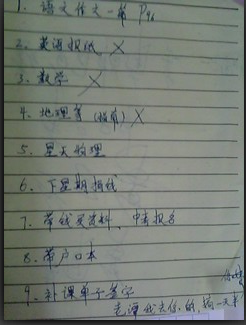 1. 语文作文一篇 P96
2. 英语报纸 ×
3. 数学 ×
4. 地理等 (极有) ×
5. 星天物理
6. 下星期
7. 带钱买资料、中考报名
8. 带户口本
9. 补课单子签字